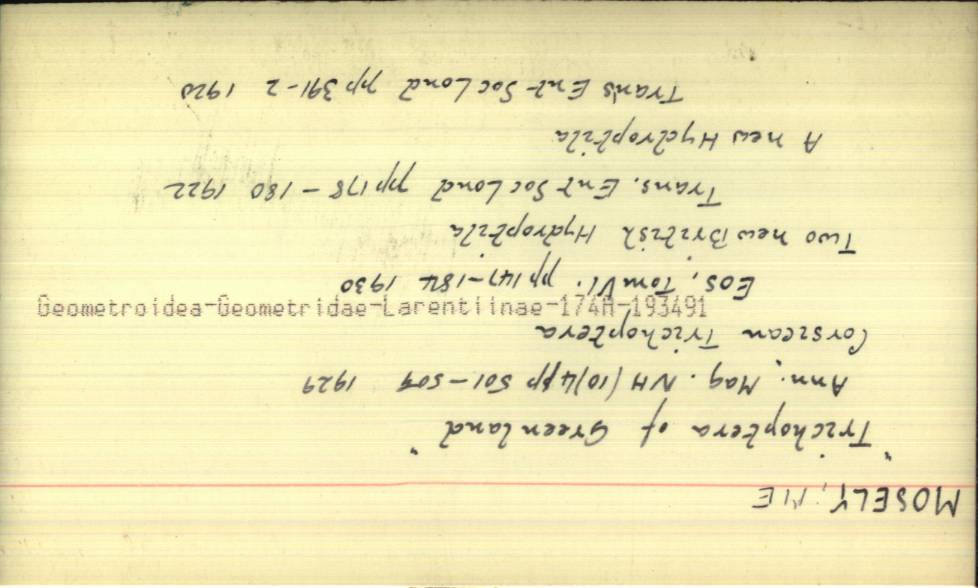 MOSELY, ME
"Trichoptera of Greenland"
Ann. Mag. NH (10)4 pp 501-509 1929
Corsican Trichoptera
Geometroidea-Geometridae-Larentiinae-174H-193491
EOS, Tom VI. pp 147-184 1930
Two new British Hydroptila
Trans. Ent Soc Lond pp 178-180 1922
A new Hydroptila
Trans Ent Soc Lond pp 391-2 1920